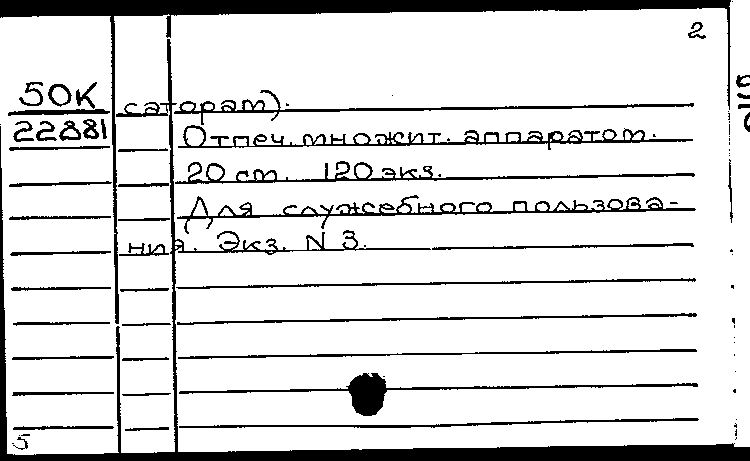 2
50К саторам).
22881 Отпеч. множит. аппаратом.
20 см. 120 экз.
Для служебного пользова-
ния. Экз. N 3.
5